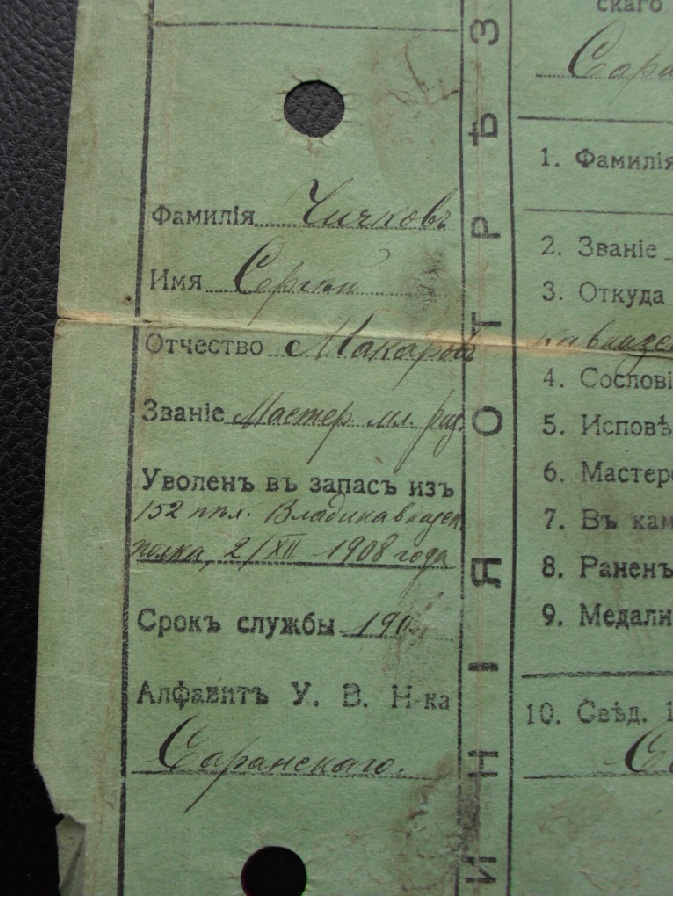 Фамилія Чичковъ
Имя Сергѣй
Отчество Макаровъ
Званіе Мастер мл. раз.
Уволенъ въ запасъ изъ
152 пѣх. Владикавказск.
полка, 2/XII 1908 года
Срокъ службы 190
Алфавитъ У. В. Н-ка
Саранскаго.
ИНІЯ ОТРѢЗ
скаго
Сара
1. Фамилія
2. Званіе
3. Откуда
кавказск
4. Сословi
5. Исповѣ
6. Мастеро
7. Въ кам
8. Раненъ
9. Медали
10. Свѣд. 1
Са